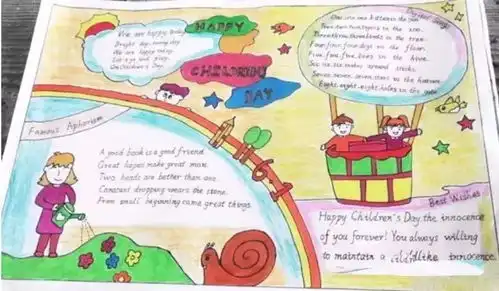 We are happy today
Bright day, sunny day
We are happy today
Children's Day
HAPPY
CHILDREN'S
DAY
One one one
in the zoo.
Three three three birds in the tree.
Four four four dogs on the floor.
Five five five bees in the hive.
Six six six
sticks.
Seven seven seven stars in the heaven
Eight eight eight
in the gate
Famous Aphorism
A good book is a good friend.
Great hopes make great man.
Two heads are better than one.
Constant dropping wears the stone.
From small beginning come great things.
Best Wishes
Happy Children's Day the innocence
of you forever! You always willing
to maintain a childlike innocence.